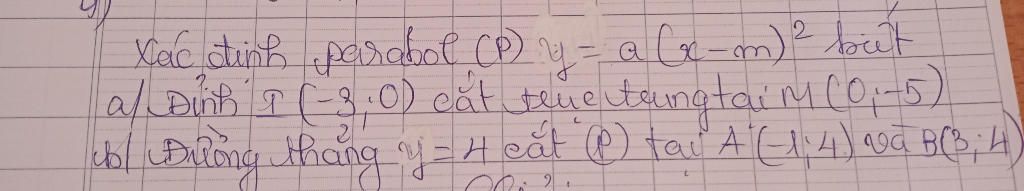 Xác định parabol (P) y = a(x-m)² biết
a/ Đỉnh I (-3;0) cắt trục tung tại M(0;-5)
b/ Đường thẳng y = 4 cắt (P) tại A(-1;4) và B(3;4)